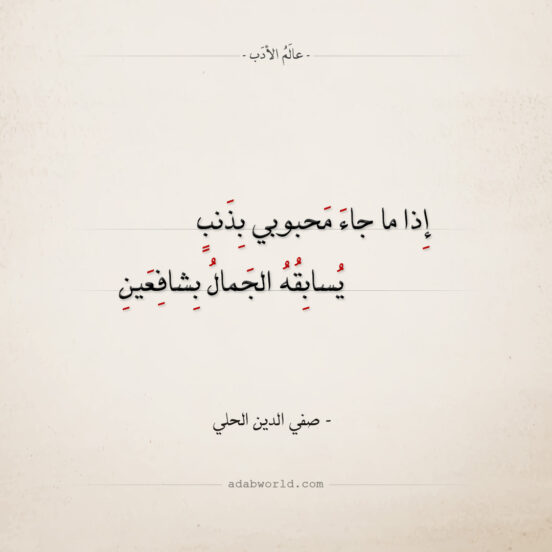 - عالَمُ الأدَب -
إِذا ما جاءَ مَحبوبي بِذَنبٍ
يُسابِقُهُ الجَمالُ بِشافِعَينِ
- صفي الدين الحلي
adabworld.com